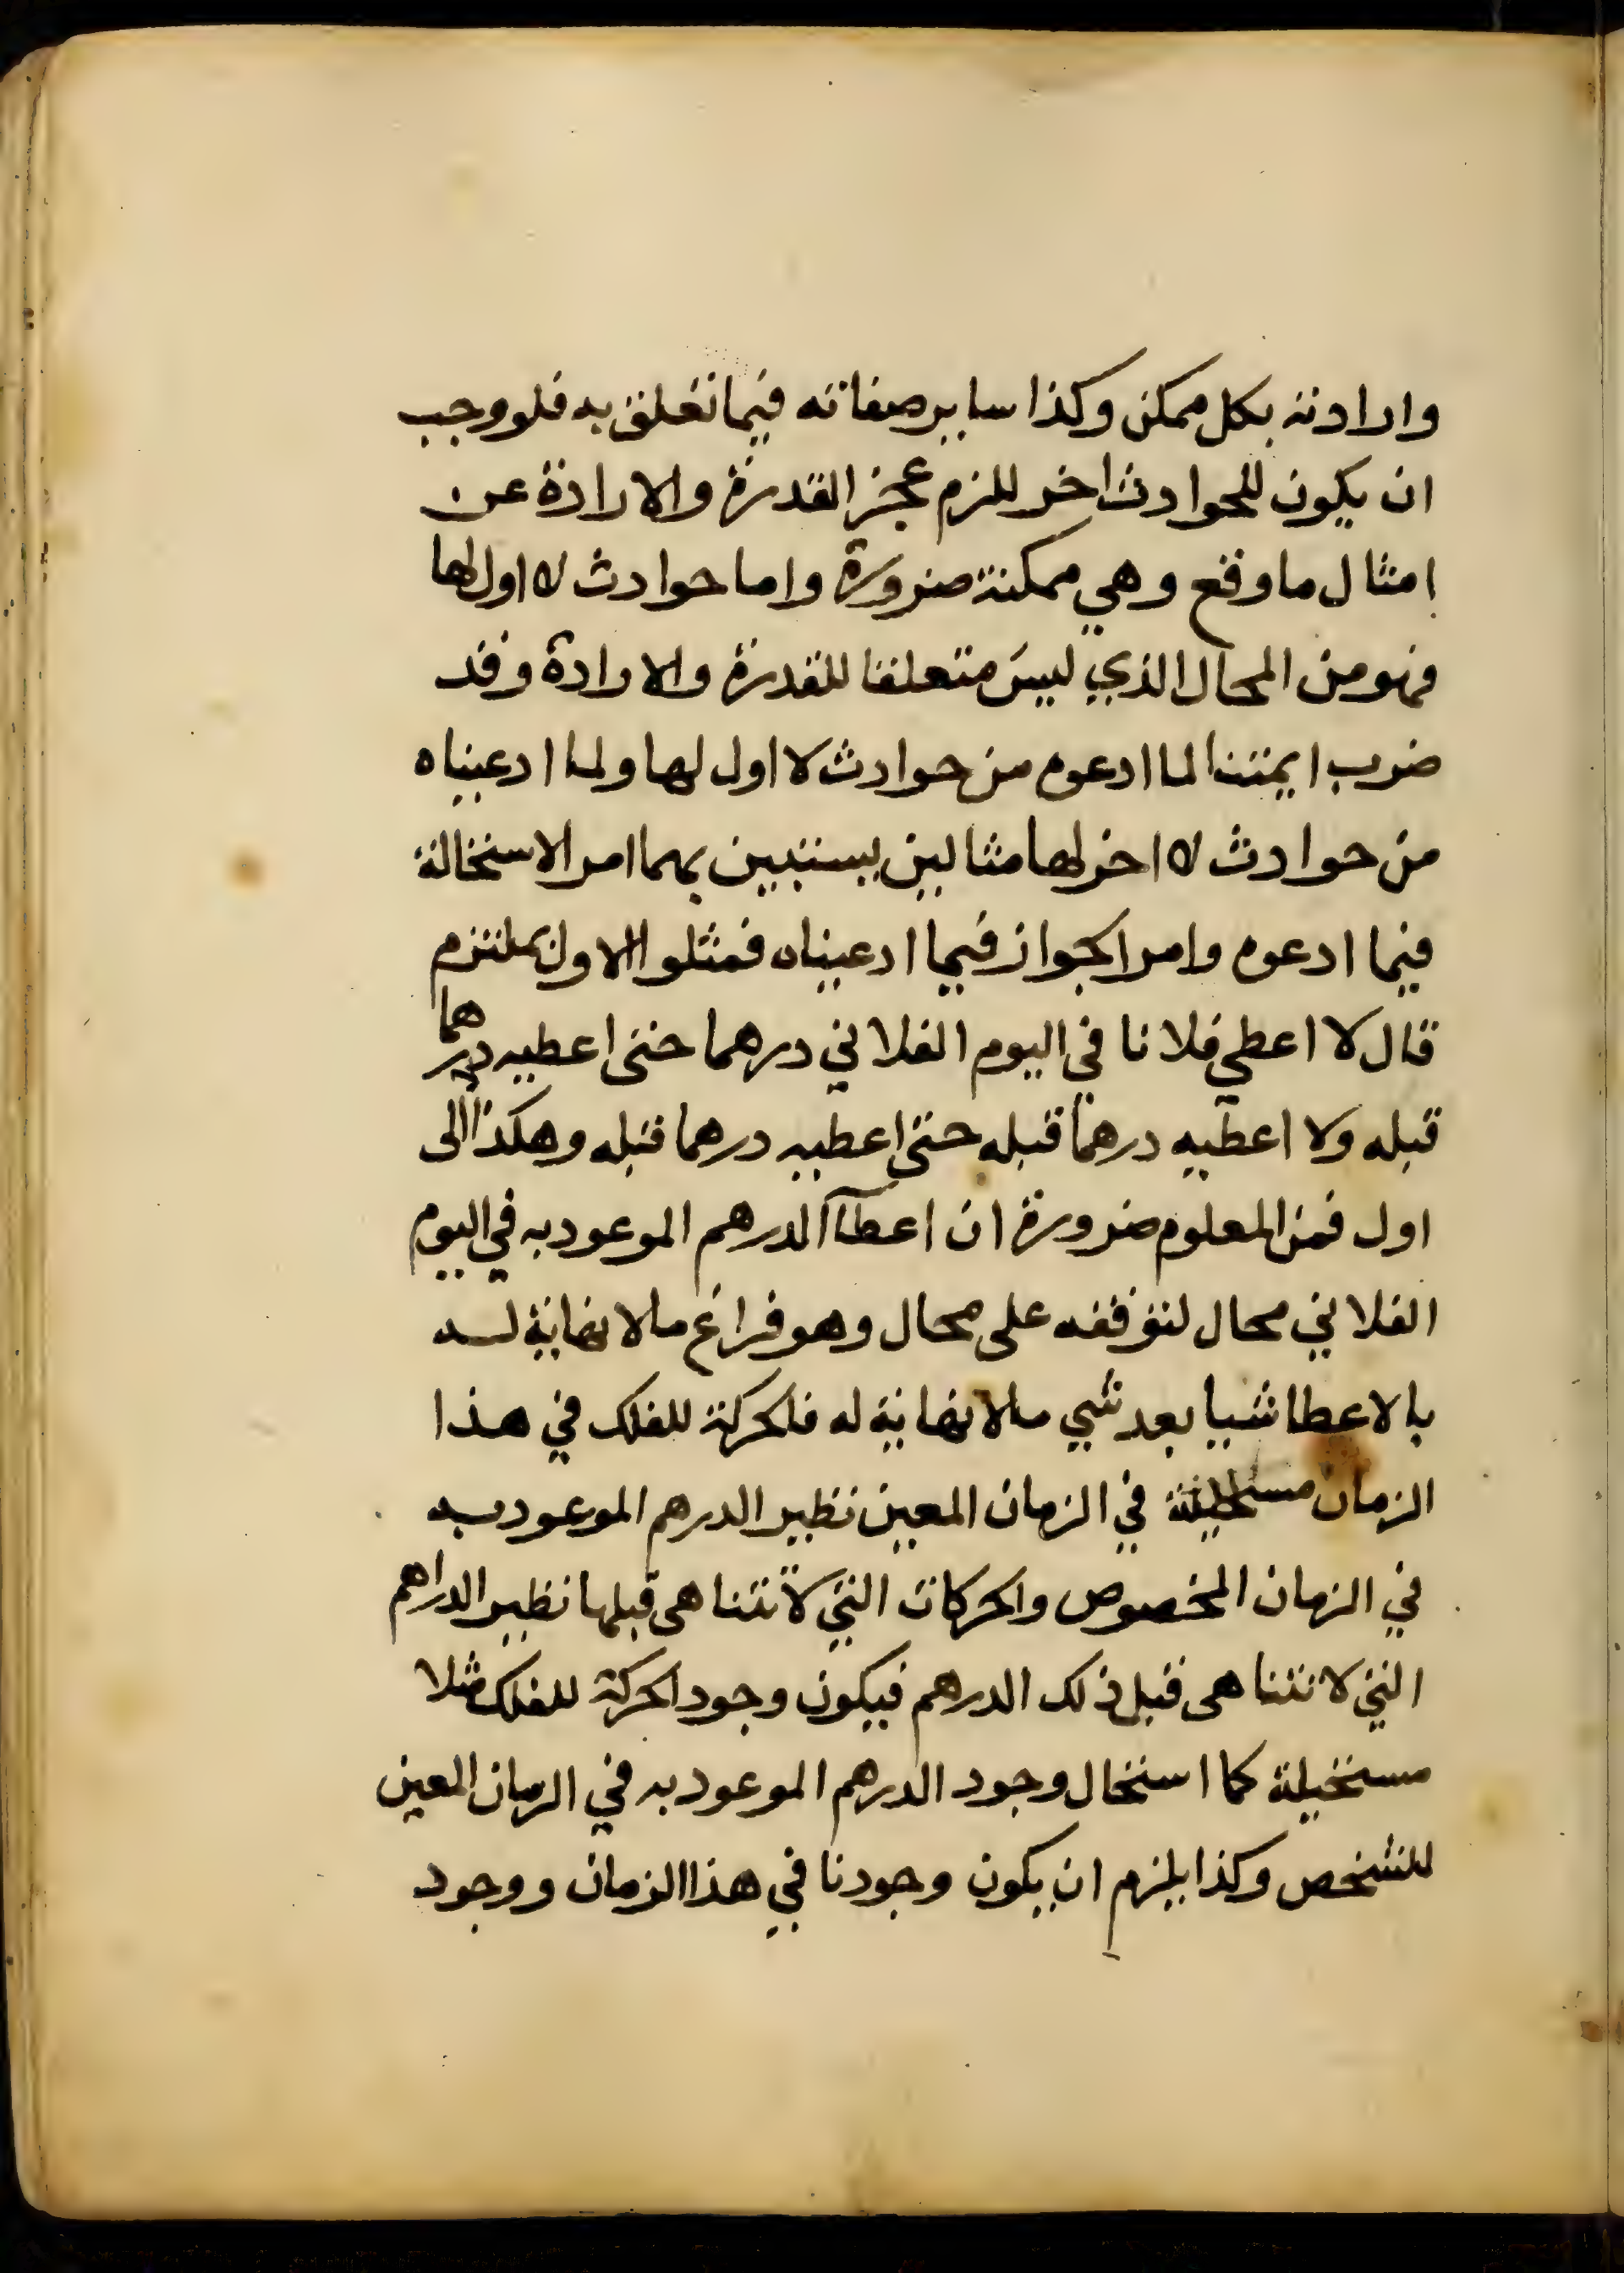 وارادته بكل ممكن وكذا ساير صفاته فيما تتعلق به فلو وجب
ان يكون للحوادث اخر للزم عجز القدرة والارادة عن
امثال ما وقع وهي ممكنة ضرورة واما حوادث لا اول لها
فهو من المحال الذي ليس متعلقا للقدرة والارادة وقد
ضرب ايمتنا لما ادعوه من حوادث لا اول لها ولما ادعيناه
من حوادث لا اخر لها مثالين يستبين بهما امر الاستحالة
فيما ادعوه وامر الجواز فيما ادعيناه فمثلوا الاول بملتزم
قال لا اعطي فلانا في اليوم الفلاني درهما حتى اعطيه درهما
قبله ولا اعطيه درهما قبله حتى اعطيه درهما قبله وهكذا الى
اول فمن المعلوم ضرورة ان اعطآ الدرهم الموعود به في اليوم
الفلاني محال لتوقفه على محال وهو فراغ ما لا نهاية له
بالاعطا شيا بعد شي ما لا نهاية له فالحركة للفلك في هذا
الزمان مستحيلة في الزمان المعين نظير الدرهم الموعود به
في الزمان المخصوص والحركات التي لا تتناهى قبلها نظير الدراهم
التي لا تتناهى قبل ذلك الدرهم فيكون وجود الحركة للفلك مثلا
مستحيلة كما استحال وجود الدرهم الموعود به في الزمان المعين
للشخص وكذا يلزم ان يكون وجودنا في هذا الزمان ووجود